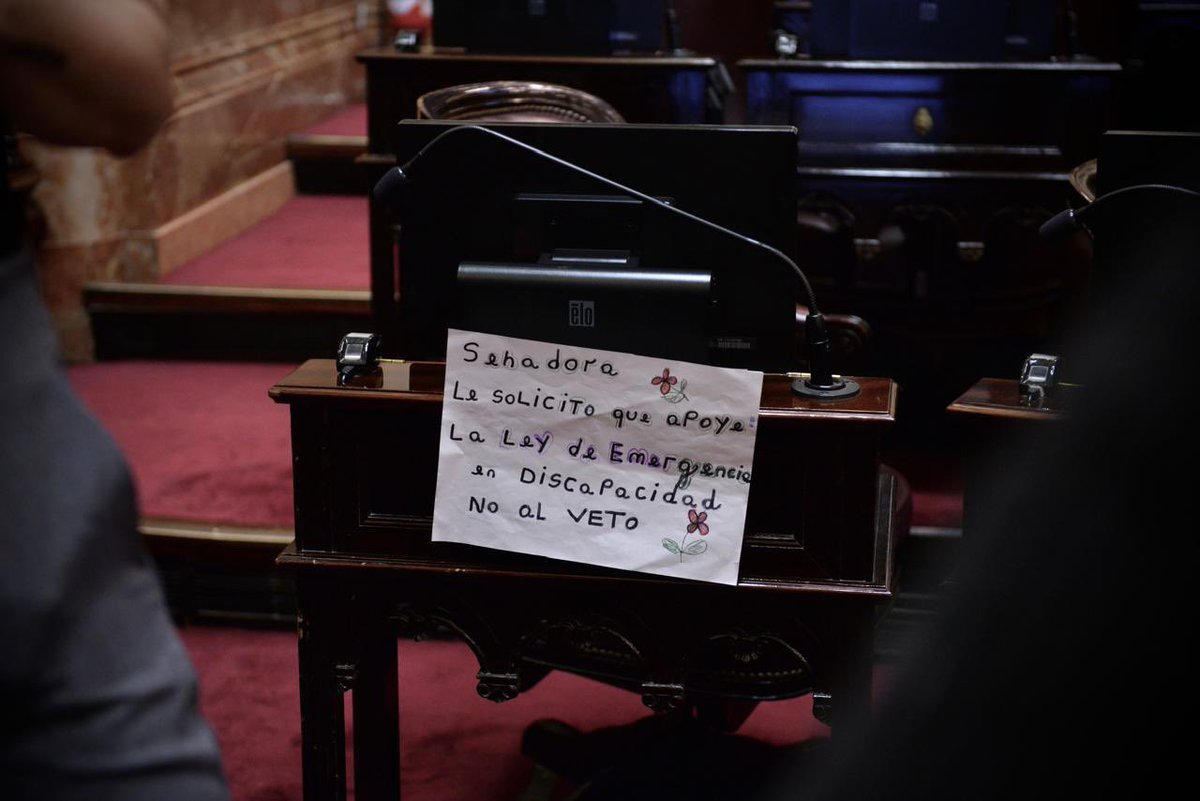 elo
Senadora
Le soLicito que aPoye
La Ley de Emergencia
en DiscaPacidad
No al VETo